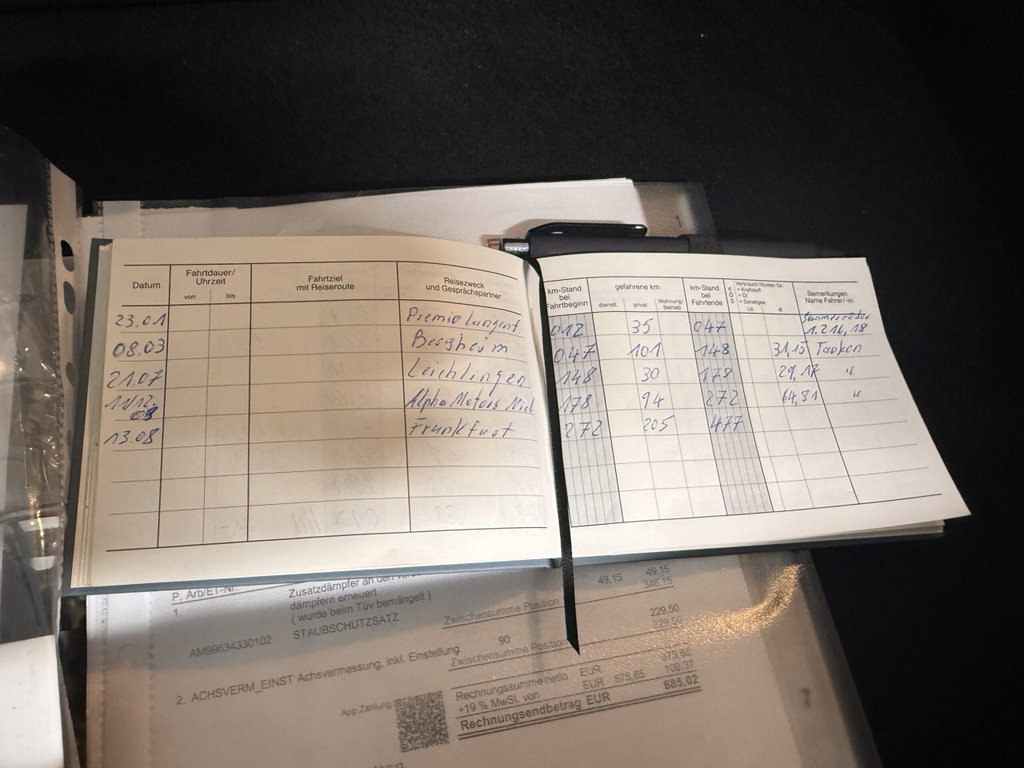 Datum
Fahrtdauer/
Uhrzeit
von bis
Fahrtziel
mit Reiseroute
Reisezweck
und Gesprächspartner
km-Stand
bei
Fahrtbeginn
gefahrene km
dienstl. privat Wohnung/
Betrieb
km-Stand
bei
Fahrtende
Verbrauch/Kosten für:
K = Kraftstoff
O = Öl
S = Sonstiges
Ltr. €
Bemerkungen
Name Fahrer/-in
23.01 Premio 012 35 047
08.03 Bergheim 047 101 148 31,15 Tanken
21.07 Leichlingen 148 30 178 29,17 "
11/12.08 Alpha Motors 178 94 272 64,81 "
13.08 Frankfurt 272 205 477
P. Arb/ET-Nr.
1. Zusatzdämpfer an den
dämpfern erneuert
( wurde beim Tüv bemängelt )
AM99634330102 STAUBSCHUTZSATZ 49,15 49,15
Zwischensumme Position 348,15
2. ACHSVERM_EINST Achsvermessung, inkl. Einstellung 90 229,50
Zwischensumme Position 229,50
App Zahlung
Rechnungssumme netto EUR
+19 % MwSt. von EUR 575,65 109,37
Rechnungsendbetrag EUR 685,02